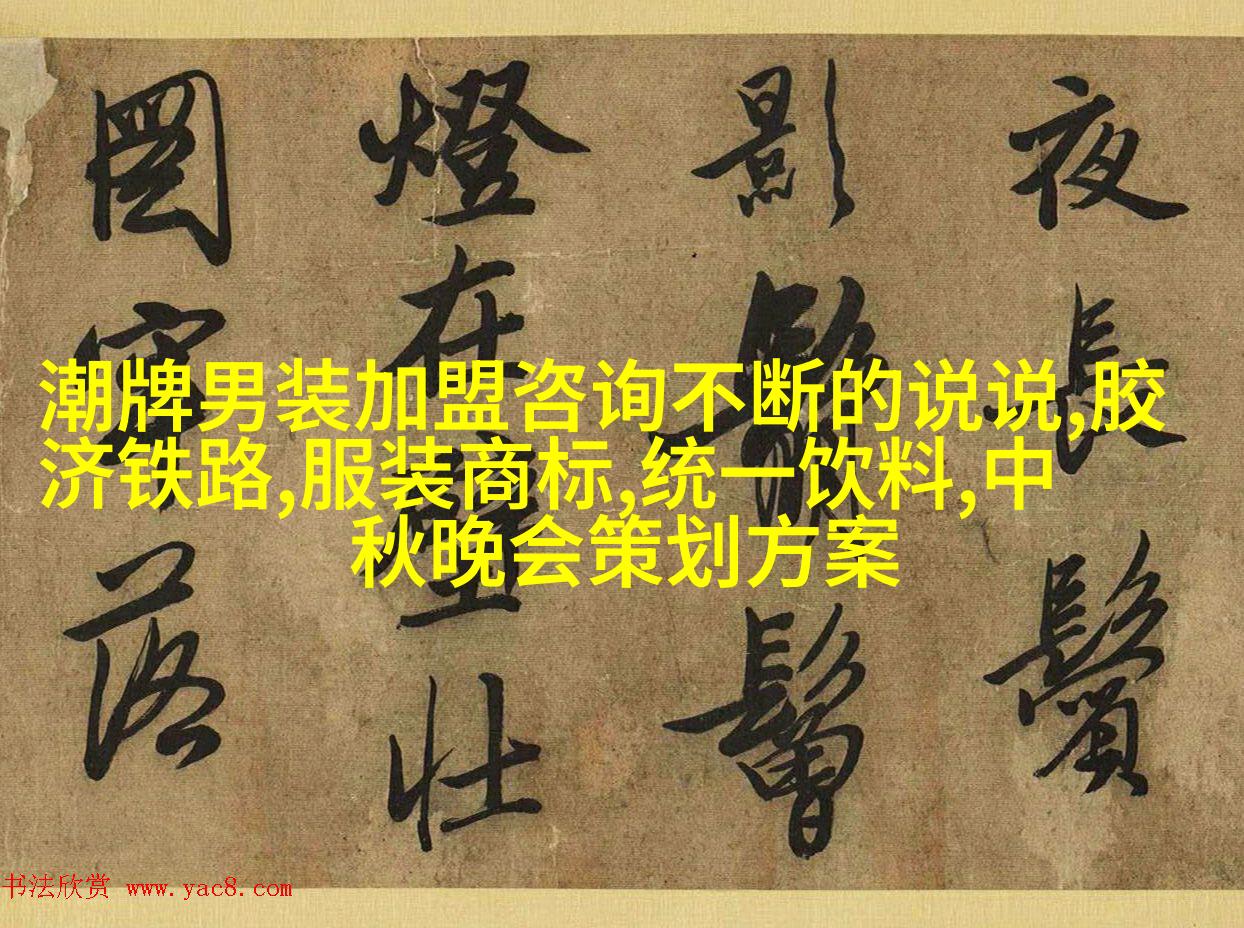 夜長鬢
影鬅鬙
燈在壁壯
圖寥落
潮牌男装加盟咨询不断的说说,胶
济铁路,服装商标,统一饮料,中
秋晚会策划方案
书法欣赏 www.yac8.com